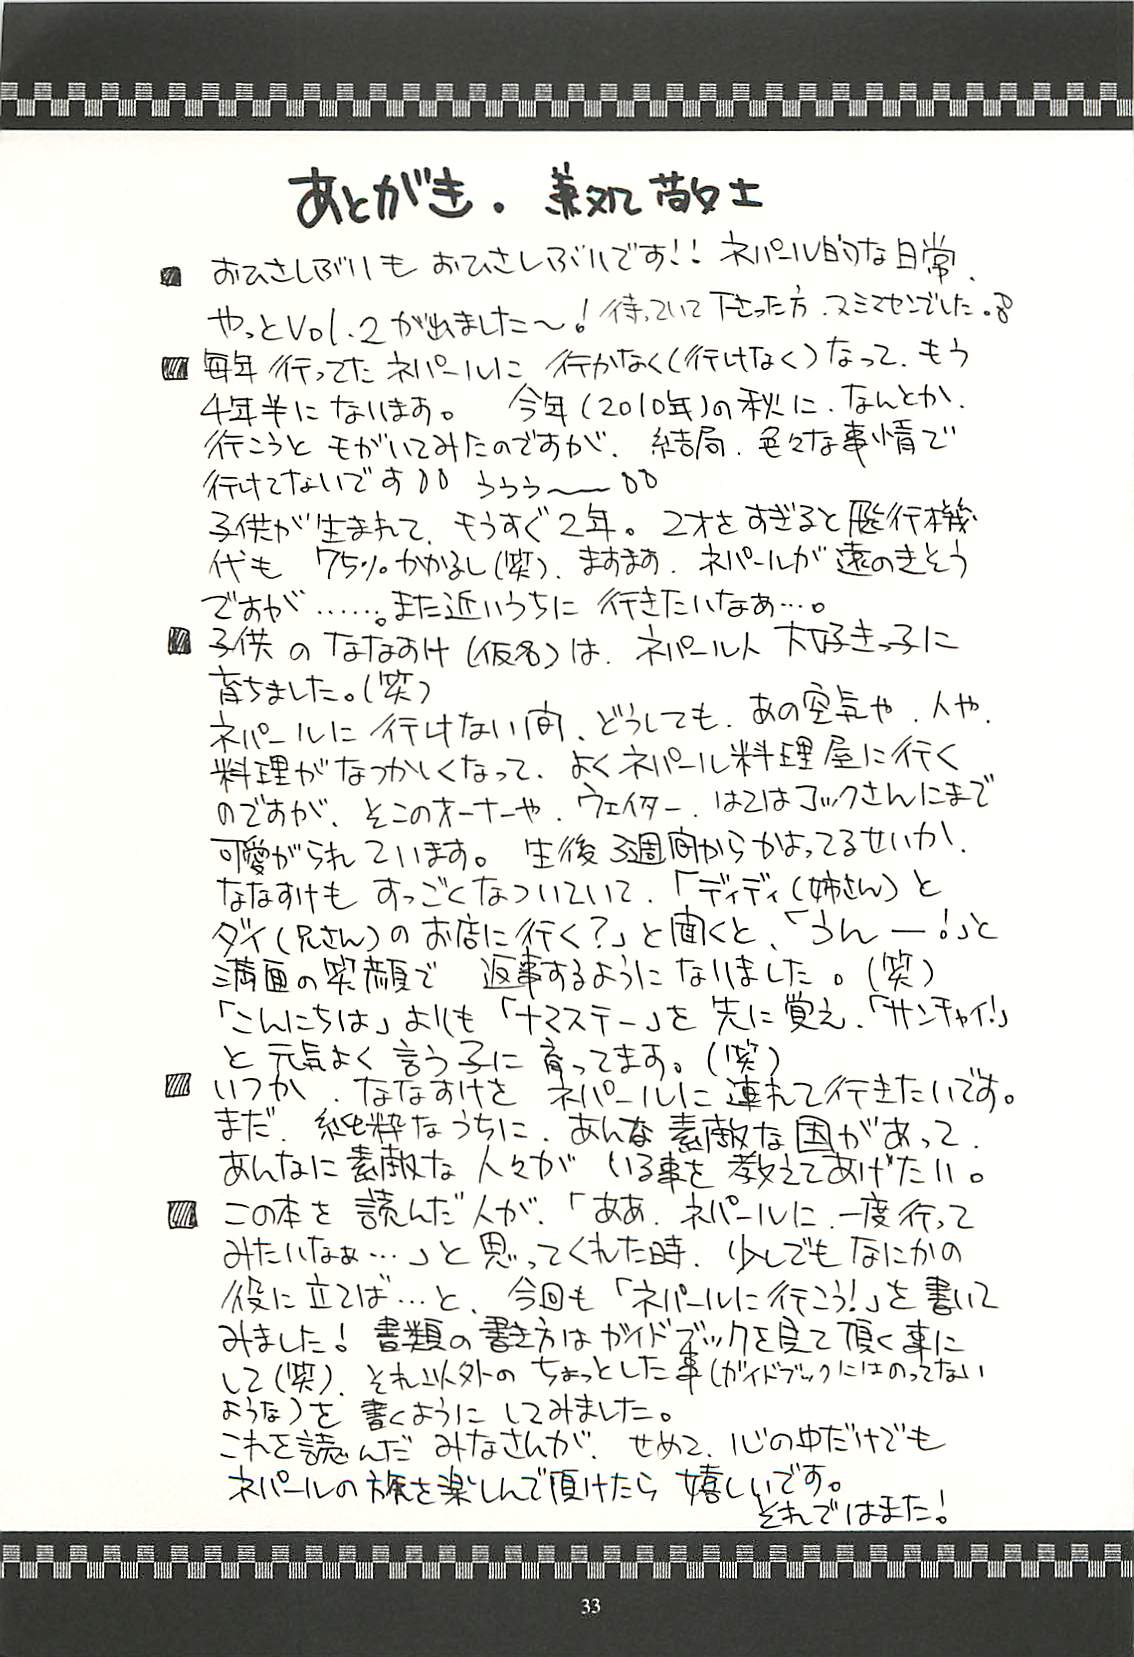 あとがき. 兼処敬士
おひさしぶりもおひさしぶりです!! ネパール的な日常、
やっとVol.2が出ました〜! 待っていて下さった方、スミマセンでした。
毎年行ってたネパールに 行かなく(行けなく)なって、もう
4年半になります。 今年(2010年)の秋に、なんとか、
行こうと モがいてみたのですが、結局、色々な事情で
行けてないです ううう〜
子供が生まれて、もうすぐ2年。2才をすぎると飛行機
代も 75%かかるし(笑)、ますます、ネパールが遠のきそう
ですが……。また近いうちに行きたいなぁ…。
子供の ななすけ(仮名)は、ネパール人 大好きっ子に
育ちました。(笑)
ネパールに行けない間、どうしても、あの空気や、人や、
料理がなつかしくなって、よくネパール料理屋に行く
のですが、そこのオーナーや、ウェイター、はてはコックさんにまで
可愛がられています。 生後3週間からかよってるせいか、
ななすけも すっごくなついていて、「ディディ(姉さん)と
ダイ(兄さん)のお店に行く?」と聞くと、「うんー!」と
満面の笑顔で 返事するようになりました。(笑)
「こんにちは」よりも「ナマステー」を先に覚え、「サンチャイ!」
と元気よく言う子に育ってます。(笑)
いつか、ななすけを ネパールに連れて行きたいです。
まだ、純粋なうちに、あんな素敵な国があって、
あんなに素敵な人々が いる事を教えてあげたい。
この本を読んだ人が、「ああ、ネパールに、一度行って
みたいなぁ…」と思ってくれた時、少しでもなにかの
役に立てば…と、今回も「ネパールに行こう!」を書いて
みました! 書類の書き方はガイドブックを見て頂く事に
して(笑)、それ以外の ちょっとした事(ガイドブックにはのってない
ような)を書くようにしてみました。
これを読んだみなさんが、せめて、心の中だけでも
ネパールの旅を楽しんで頂けたら嬉しいです。
それではまた!
33